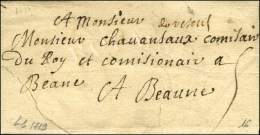 A Monsieur
Monsieur chavansaux comisaire
Du Roy et comisionair a
Beane
A Beaune